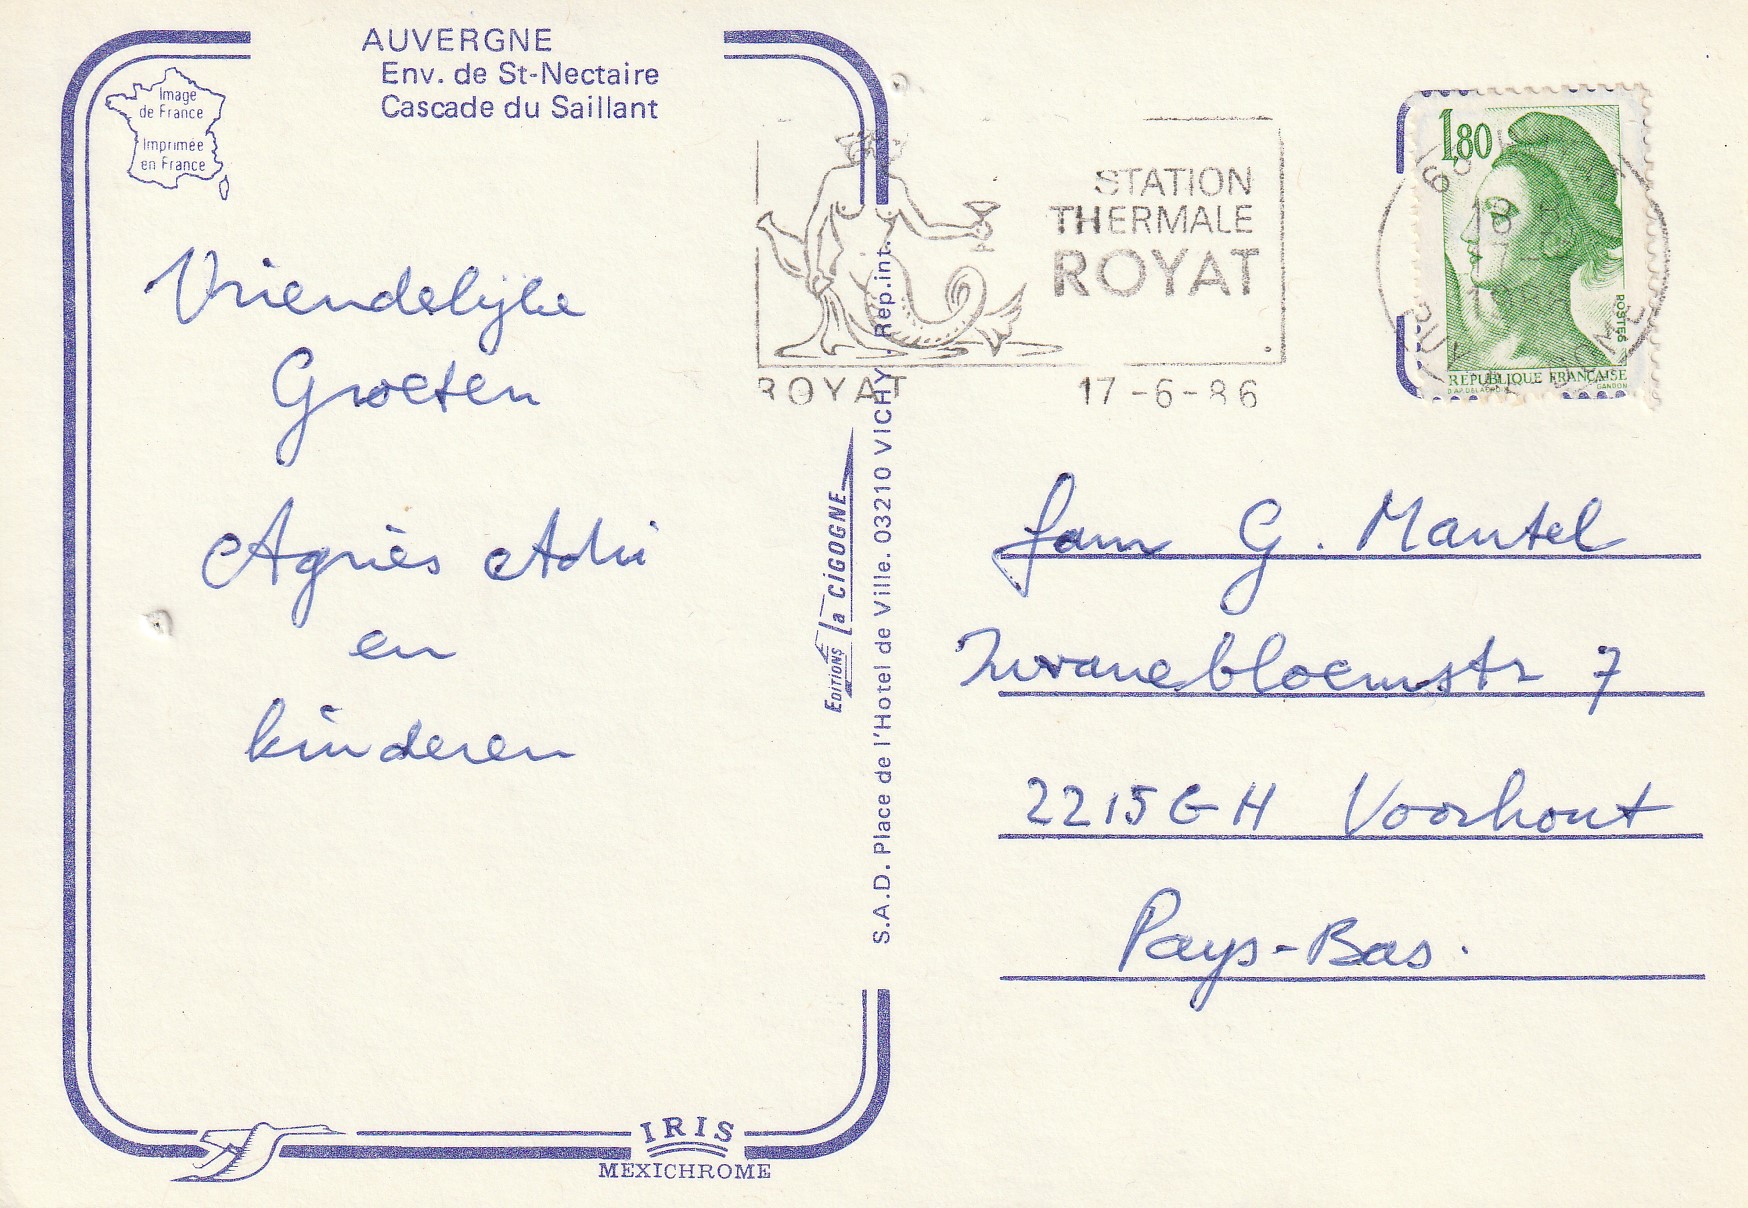 AUVERGNE
Env. de St-Nectaire
Cascade du Saillant
Image
de France
Imprimée
en France
Vriendelijke
Groeten
Agnès Adri
en
kinderen
IRIS
MEXICHROME
EDITIONS la CIGOGNE
S.A.D. Place de l'Hotel de Ville. 03210 VICHY. Rep.int.
STATION
THERMALE
ROYAT
ROYAT 17-6-86
1,80
POSTES
REPUBLIQUE FRANÇAISE
GANDON
Fam G. Mantel
Zwanebloemstr 7
2215GH Voorhout
Pays-Bas.